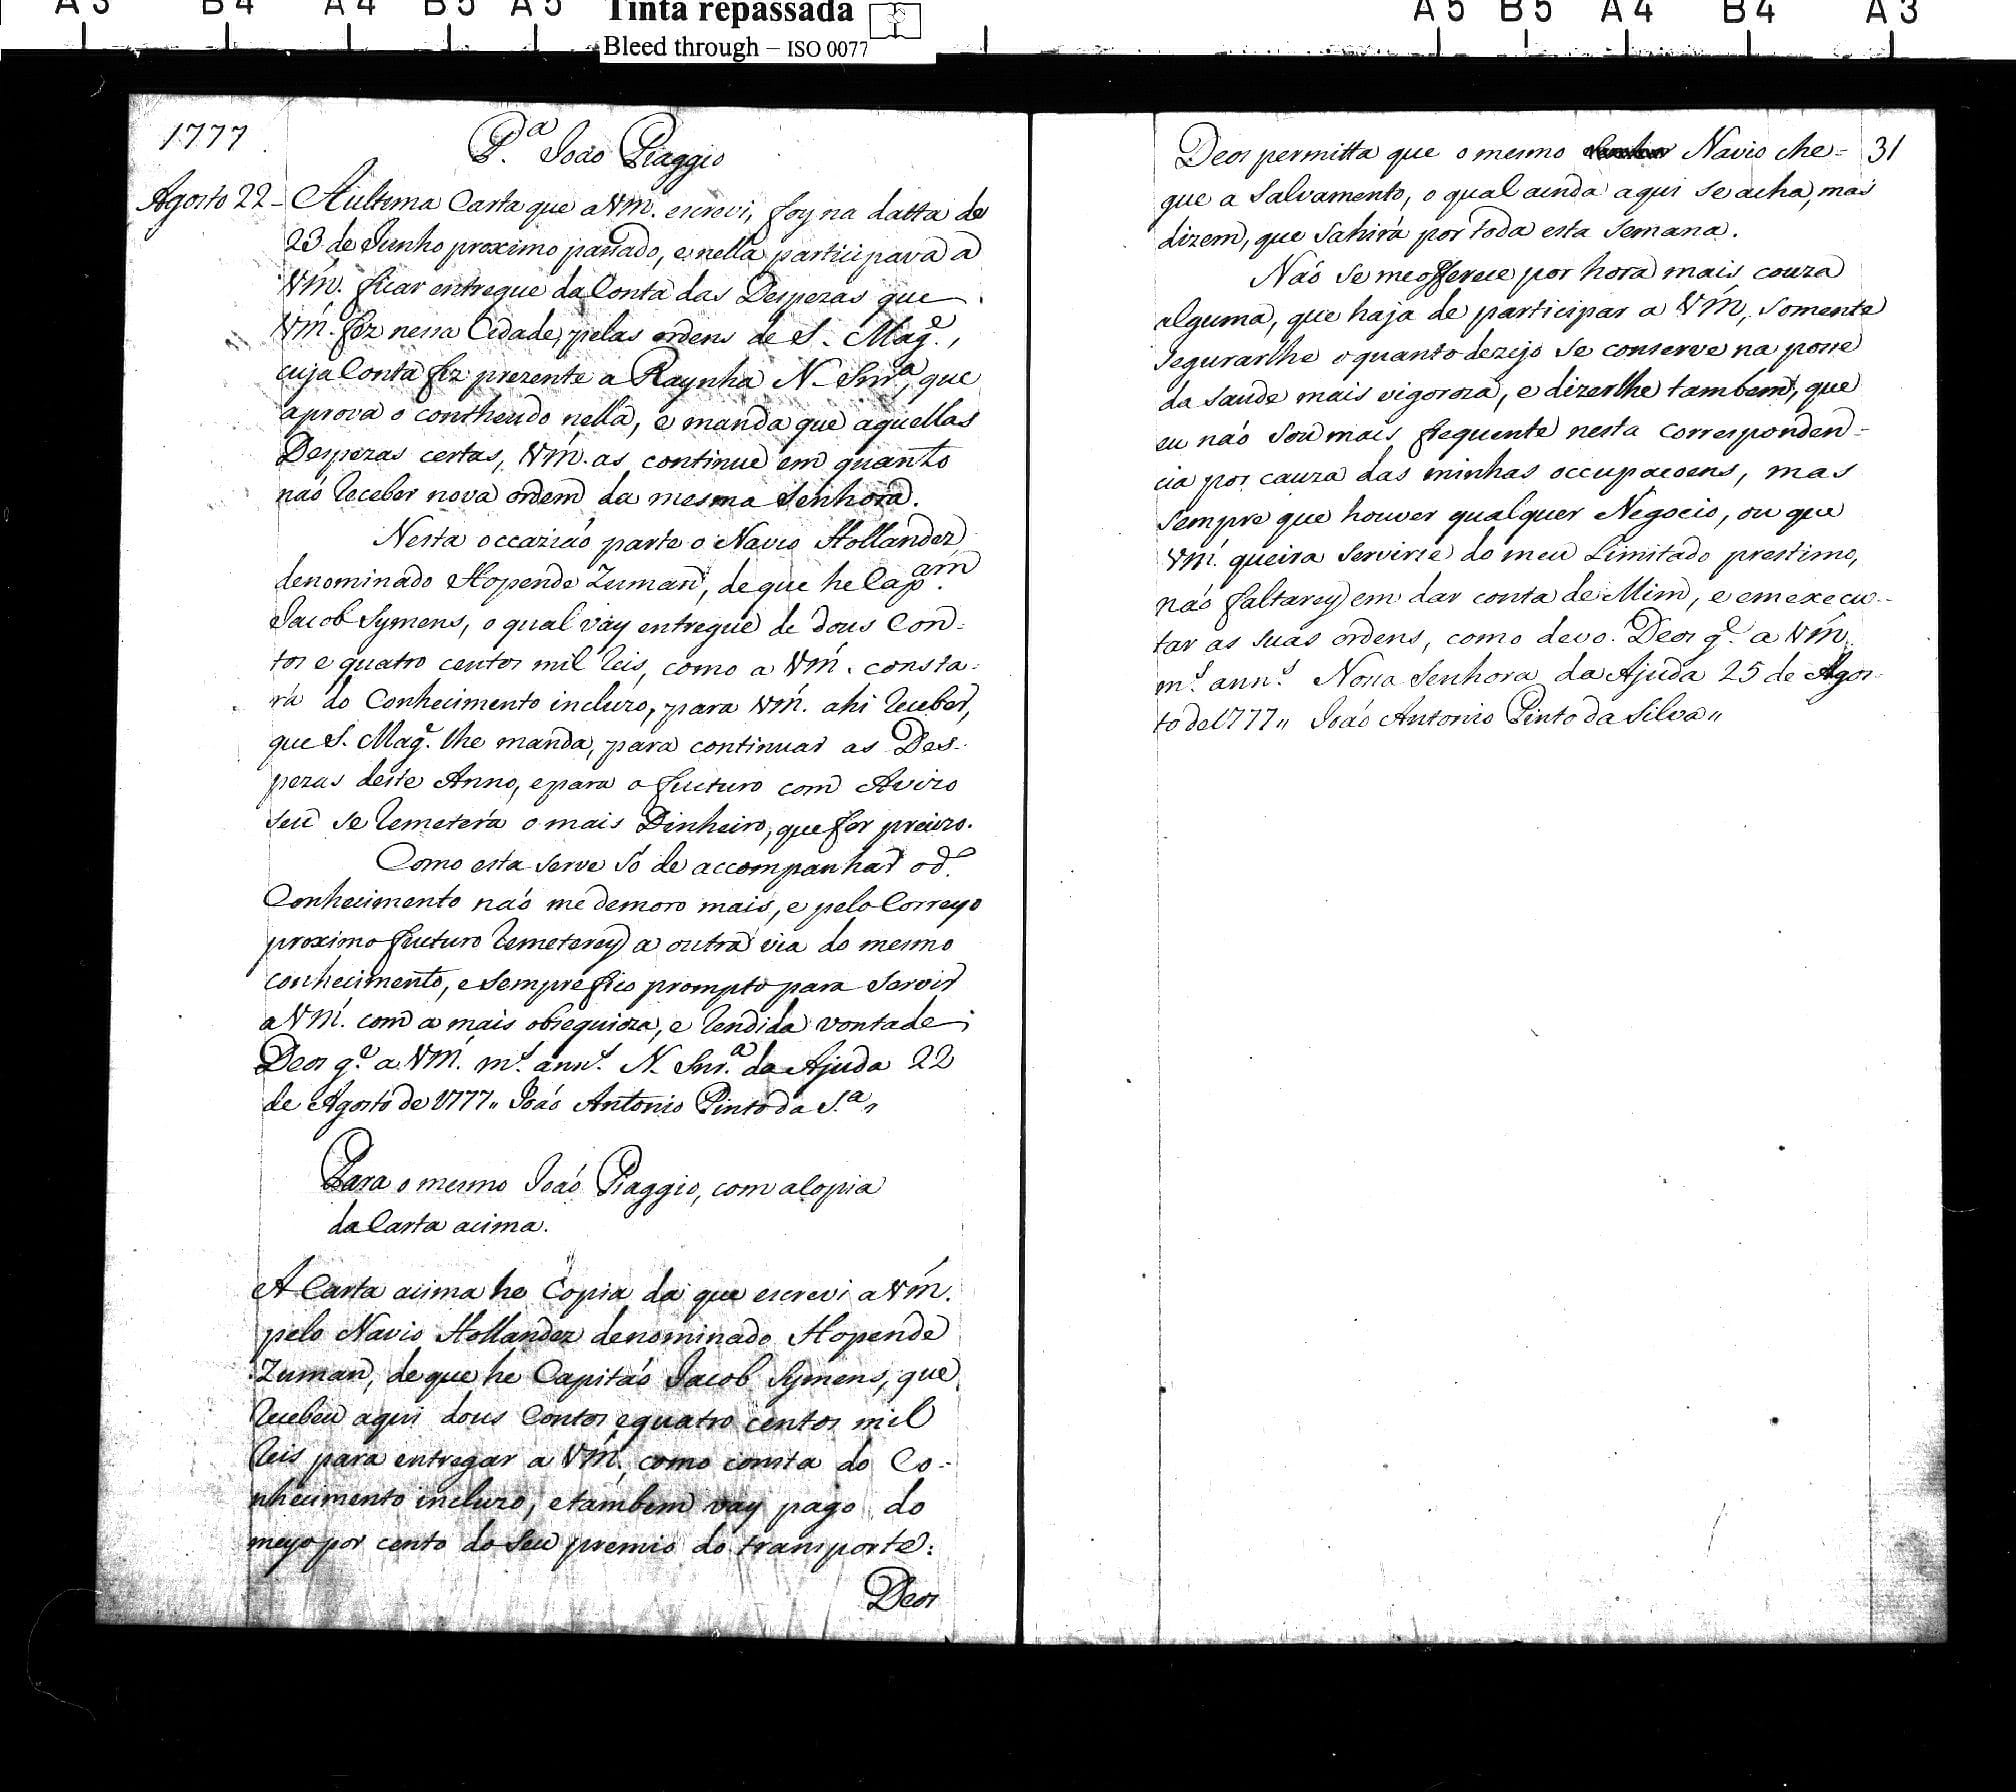 A3 B4 A4 B5 A5 Tinta repassada A5 B5 A4 B4 A3
Bleed through – ISO 0077
1777
P.ª João Piaggio
Agosto 22 - A ultima Carta que a Vm̃. escrevi, foy na datta de
23 de Junho proximo passado, e nella participava a
Vm̃. ficar entregue da Conta das Despezas que
Vm̃. fez nessa Cidade, pelas ordens de S. Mag.e,
cuja Conta fiz prezente a Raynha N. Snr.ª, que
aprova o contheudo nella, e manda que aquellas
Despezas certas, Vm̃. as continue em quanto
não receber nova ordem da mesma Senhora.
Nesta occazião parte o Navio Hollandez
denominado Hopende Zuman, de que he Cap.am
Jacob Symens, o qual vay entregue de dous Con-
tos e quatro centos mil reis, como a Vm̃. consta-
rá do Conhecimento incluzo, para Vm̃. ahi receber,
que S. Mag.e lhe manda, para continuar as Des-
pezas deste Anno, e para o fucturo com Avizo
seu se remeterá o mais Dinheiro, que for precizo.
Como esta serve só de accompanhar o d.º
Conhecimento não me demoro mais, e pelo Correyo
proximo fucturo remeterey a outra via do mesmo
conhecimento, e sempre fico prompto para servir
a Vm̃. com a mais obsequioza, e rendida vontade
Deos g.e a Vm̃. m.s ann.s N. Snr.ª da Ajuda 22
de Agosto de 1777 ,, João Antonio Pinto da S.ª ,,
Para o mesmo João Piaggio, com a Copia
da Carta acima.
A Carta acima he Copia da que escrevi a Vm̃.
pelo Navio Hollandez denominado Hopende
Zuman, de que he Capitão Jacob Symens, que
recebeu aqui dous Contos e quatro centos mil
reis para entregar a Vm̃., como consta do Co-
nhecimento incluzo, e tambem vay pago do
meyo por cento do seu premio do transporte:
Deos
Deos permitta que o mesmo Navio che- 31
gue a Salvamento, o qual ainda aqui se acha, mas
dizem, que sahirá por toda esta semana.
Não se me offerece por hora mais couza
alguma, que haja de participar a Vm̃, somente
segurarlhe o quanto dezejo se conserve na posse
da saude mais vigoroza, e dizerlhe tambem, que
eu não sou mais frequente nesta corresponden-
cia por cauza das minhas occupacoens, mas
sempre que houver qualquer Negocio, ou que
Vm̃. queira servirse do meu Limitado prestimo,
não faltarey em dar conta de Mim, e em execu-
tar as suas ordens, como devo. Deos g.e a Vm̃.
m.s ann.s Nossa Senhora da Ajuda 25 de Agos-
to de 1777 ,, João Antonio Pinto da Silva ,,